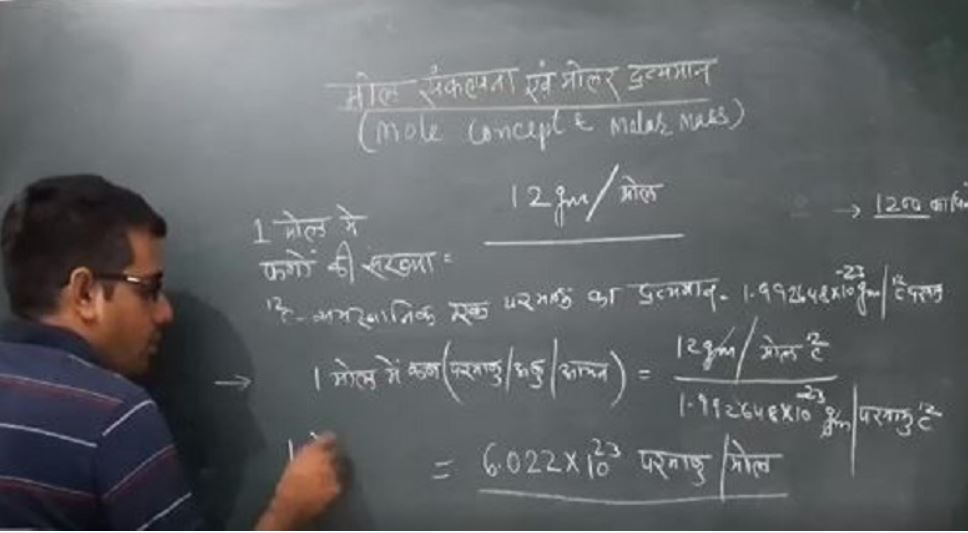 मोल संकल्पना एवं मोलर द्रव्यमान
(Mole Concept & Molar Mass)
12 gm/मोल
→ 1200
1 मोल में
कणों की संख्या =
¹²C-समस्थानिक एक परमाणु का द्रव्यमान = 1.992648×10⁻²³ gm/¹²C परमाणु
→ 1 मोल में कण (परमाणु/अणु/आयन) = 12 gm/मोल ¹²C
1.992648×10⁻²³ gm/परमाणु ¹²C
= 6.022×10²³ परमाणु/मोल
1